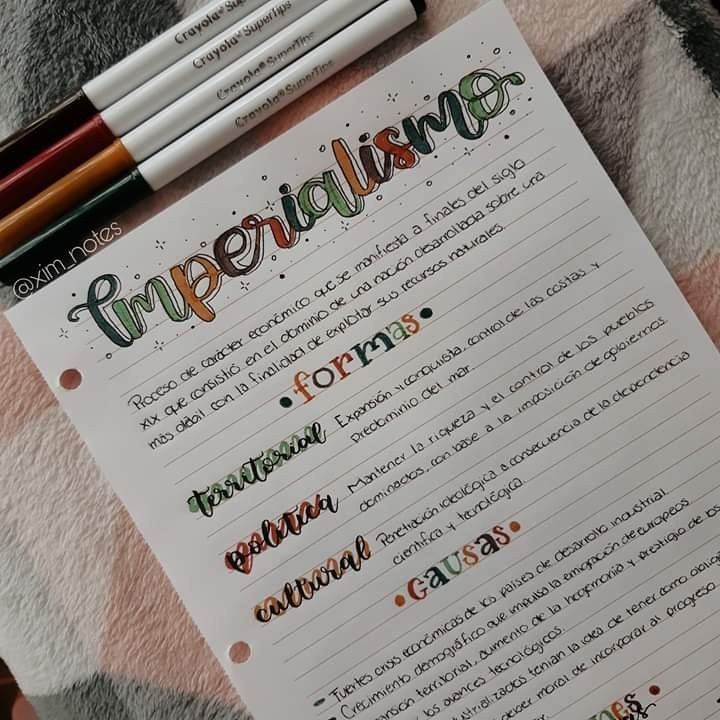 Crayola® SuperTips
Crayola® SuperTips
Crayola® SuperTips
Crayola® SuperTips
@xim_notes
Imperialismo
Proceso de carácter económico que se manifiesta a finales del siglo
XIX que consistió en el dominio de una nación desarrollada sobre una
mas débil con la finalidad de explotar sus recursos naturales.
•formas•
territorial
Expansión y conquista, control de las costas y
Predominio del mar.
política
Mantener la riqueza y el control de los pueblos
dominados, con base a la imposición de gobiernos.
cultural
Penetración ideológica a consecuencia de la dependencia
científica y tecnológica.
•causas•
Fuertes crisis económicas de los países de desarrollo industrial.
Crecimiento demográfico que impulsa la emigración de europeos.
expansión territorial, aumento de la hegemonía y prestigio de los
los avances tecnológicos.
industrializados tenían la idea de tener como
deber moral de incorporar al progreso